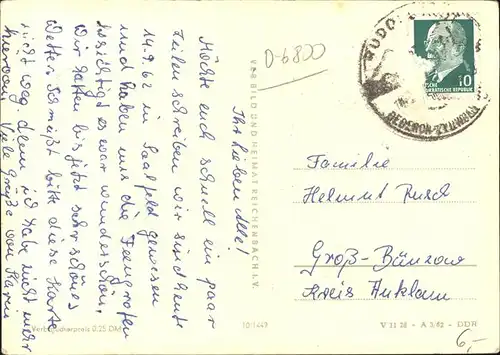 Ihr lieben Alle!
Möchte euch schnell ein paar
Zeilen schreiben wir sind heute
14.9.62 in Saalfeld gewesen
und haben uns die Feengrotten
besichtigt es war wunderschön.
Wir hatten bis jetzt sehr schönes
Wetter. Schmeißt bitte diese Karte
nicht weg denn ich habe nicht mehr
hiervon. Viele Grüße von Karin
VEB BILD UND HEIMAT REICHENBACH I. V.
Verbraucherpreis 0,25 DM
10/1449
D-6800
RUDOL
DEDERON
10
DEUTSCHE
DEMOKRATISCHE REPUBLIK
Familie
Helmut Rusch
Groß-Bünzow
Kreis Anklam
V 11 28 - A 3/62 - DDR
6,-